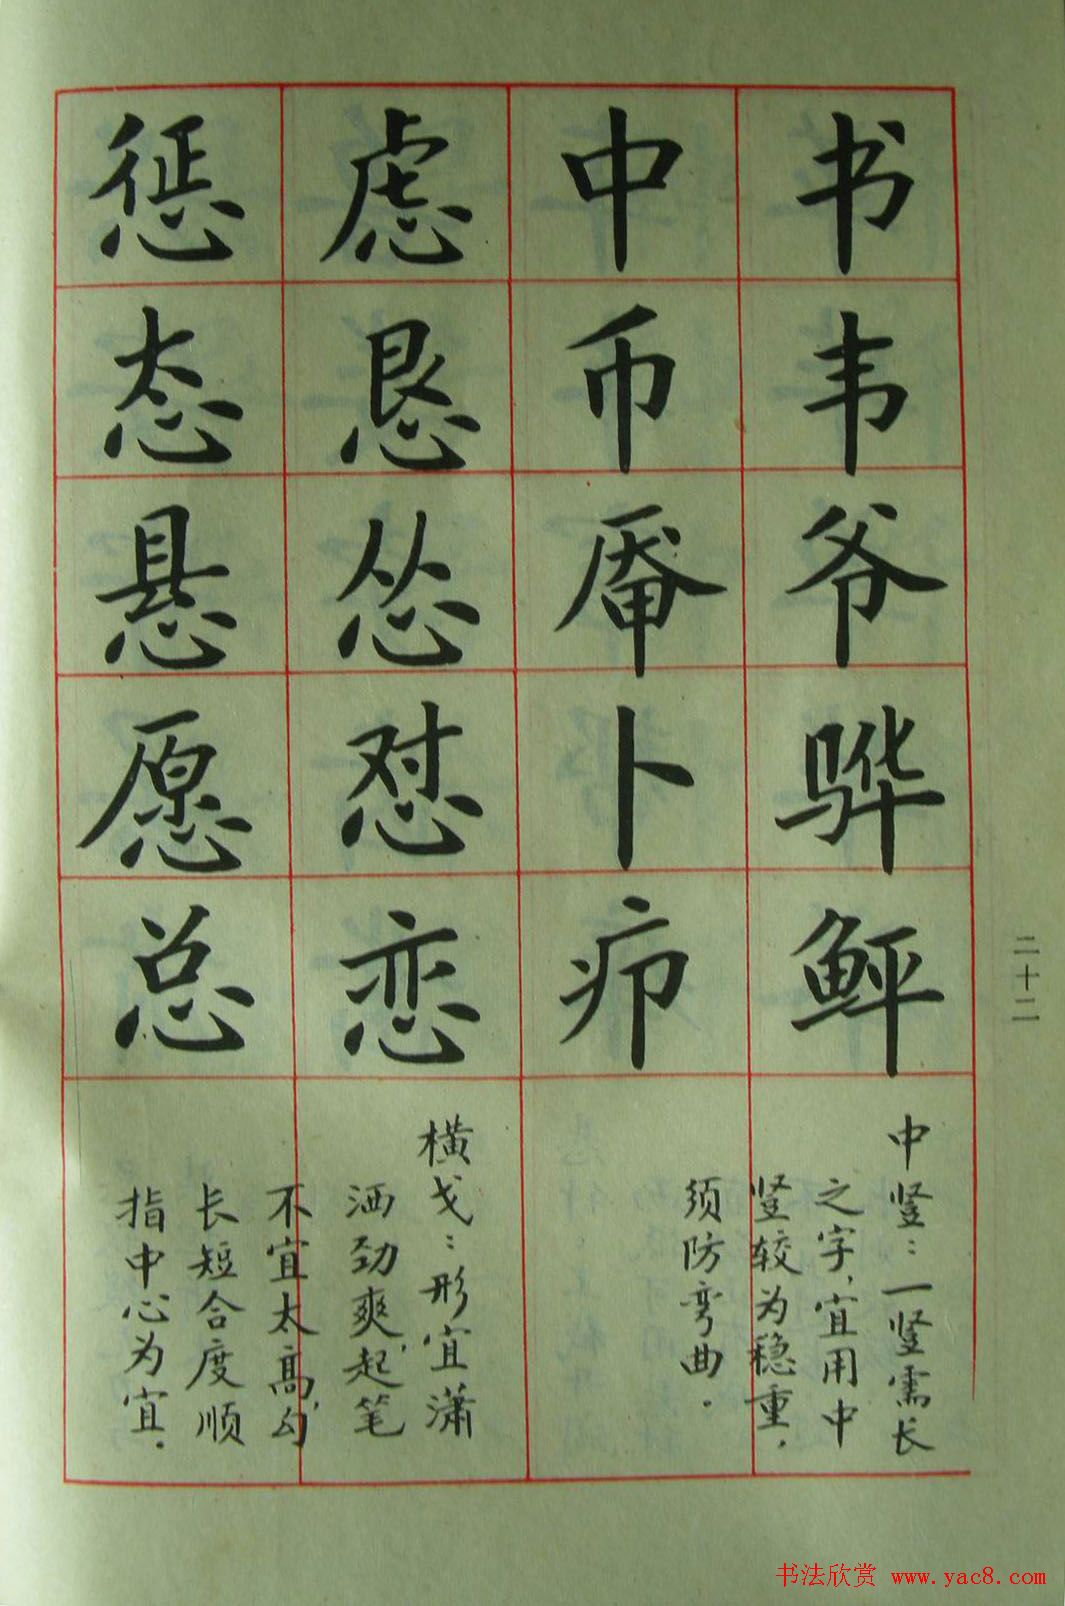 书韦爷骅鲆
中币厣卜疖
虑恳怂怼恋
惩态悬愿总
中竖：一竖需长
之字，宜用中
竖较为稳重，
须防弯曲。
横戈：形宜潇
洒劲爽，起笔
不宜太高，勾
长短合度顺
指中心为宜。
二十二
书法欣赏 www.yac8.com